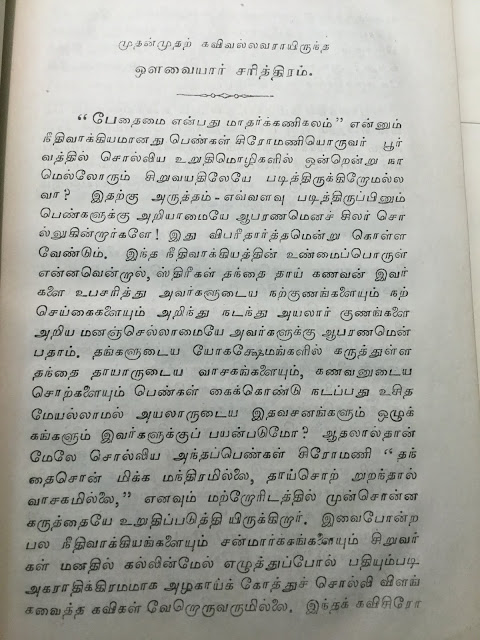 முதன்முதற் கவிவல்லவராயிருந்த
ஔவையார் சரித்திரம்.
“ பேதைமை என்பது மாதர்க்கணிகலம் ” என்னும்
நீதிவாக்கியமானது பெண்கள் சிரோமணியொருவர் பூர்
வத்தில் சொல்லிய உறுதிமொழிகளில் ஒன்றென்று நா
மெல்லோரும் சிறுவயதிலேயே படித்திருக்கிறோமல்ல
வா? இதற்கு அருத்தம் - எவ்வளவு படித்திருப்பினும்
பெண்களுக்கு அறியாமையே ஆபரணமெனச் சிலர் சொ
ல்லுகின்றார்களே! இது விபரீதார்த்தமென்று கொள்ள
வேண்டும். இந்த நீதிவாக்கியத்தின் உண்மைப்பொருள்
என்னவென்றால், ஸ்திரீகள் தந்தை தாய் கணவன் இவர்
களை உபசரித்து அவர்களுடைய நற்குணங்களையும் நற்
செய்கைகளையும் அறிந்து நடந்து அயலார் குணங்களை
அறிய மனஞ்செல்லாமையே அவர்களுக்கு ஆபரணமென்
பதாம். தங்களுடைய யோகக்ஷேமங்களில் கருத்துள்ள
தந்தை தாயாருடைய வாசகங்களையும், கணவனுடைய
சொற்களையும் பெண்கள் கைக்கொண்டு நடப்பது உசித
மேயல்லாமல் அயலாருடைய இதவசனங்களும் ஒழுக்
கங்களும் இவர்களுக்குப் பயன்படுமோ? ஆதலால்தான்
மேலே சொல்லிய அந்தப்பெண்கள் சிரோமணி “ தந்
தைசொன் மிக்க மந்திரமில்லை, தாய்சொற் றுறந்தால்
வாசகமில்லை,” எனவும் மற்றோரிடத்தில் முன்சொன்ன
கருத்தையே உறுதிப்படுத்தி யிருக்கிறார். இவைபோன்ற
பல நீதிவாக்கியங்களையும் சன்மார்க்கங்களையும் சிறுவர்
கள் மனதில் கல்லின்மேல் எழுத்துப்போல் பதியும்படி
அகராதிக்கிரமமாக அழகாய்க் கோத்துச் சொல்லி விளங்
கவைத்த கவிகள் வேறொருவருமில்லை. இந்தக் கவிசிரோ